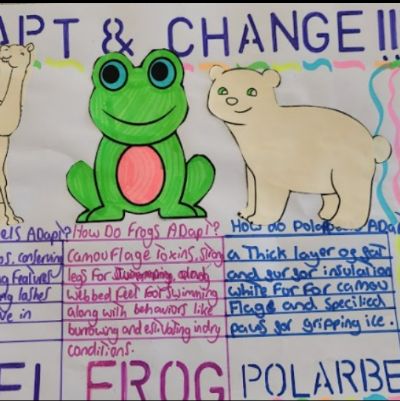 APT & CHANGE!!
els ADapt?
How Do Frogs ADapt?
How do Polar ADa
os, conserving
ng features
ng lashes
ve in
Camouflage Toxins, strong
legs For swimming, along
webbed feet for swimming
along with behaviors like
burrowing and estivating in dry
conditions.
a Thick layer of fat
and fur for insulation
white Fur For camou
Flage and Specilied
paws for gripping ice.
EL
FROG
POLARBE